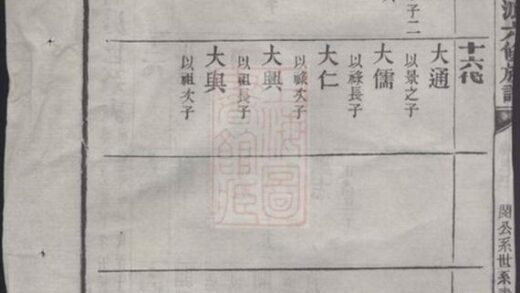 六修族譜
公系世系
十六代
大通
以景之子
子二
大儒
以祿長子
大仁
以祿次子
大興
以祖長子
大與
以祖次子
海圖
館藏